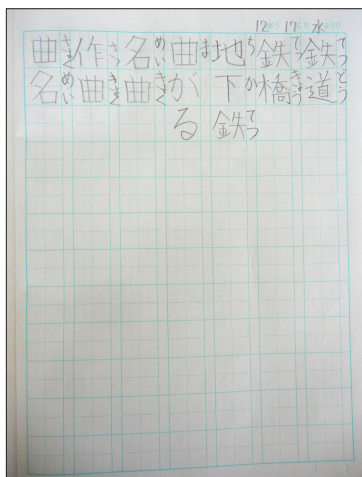 12がつ17にち水ようび
鉄てつ道どう
鉄てっ橋きょう
地ち下か鉄てつ
曲まがる
名めい曲きょく
作さっ曲きょく
曲きょく名めい